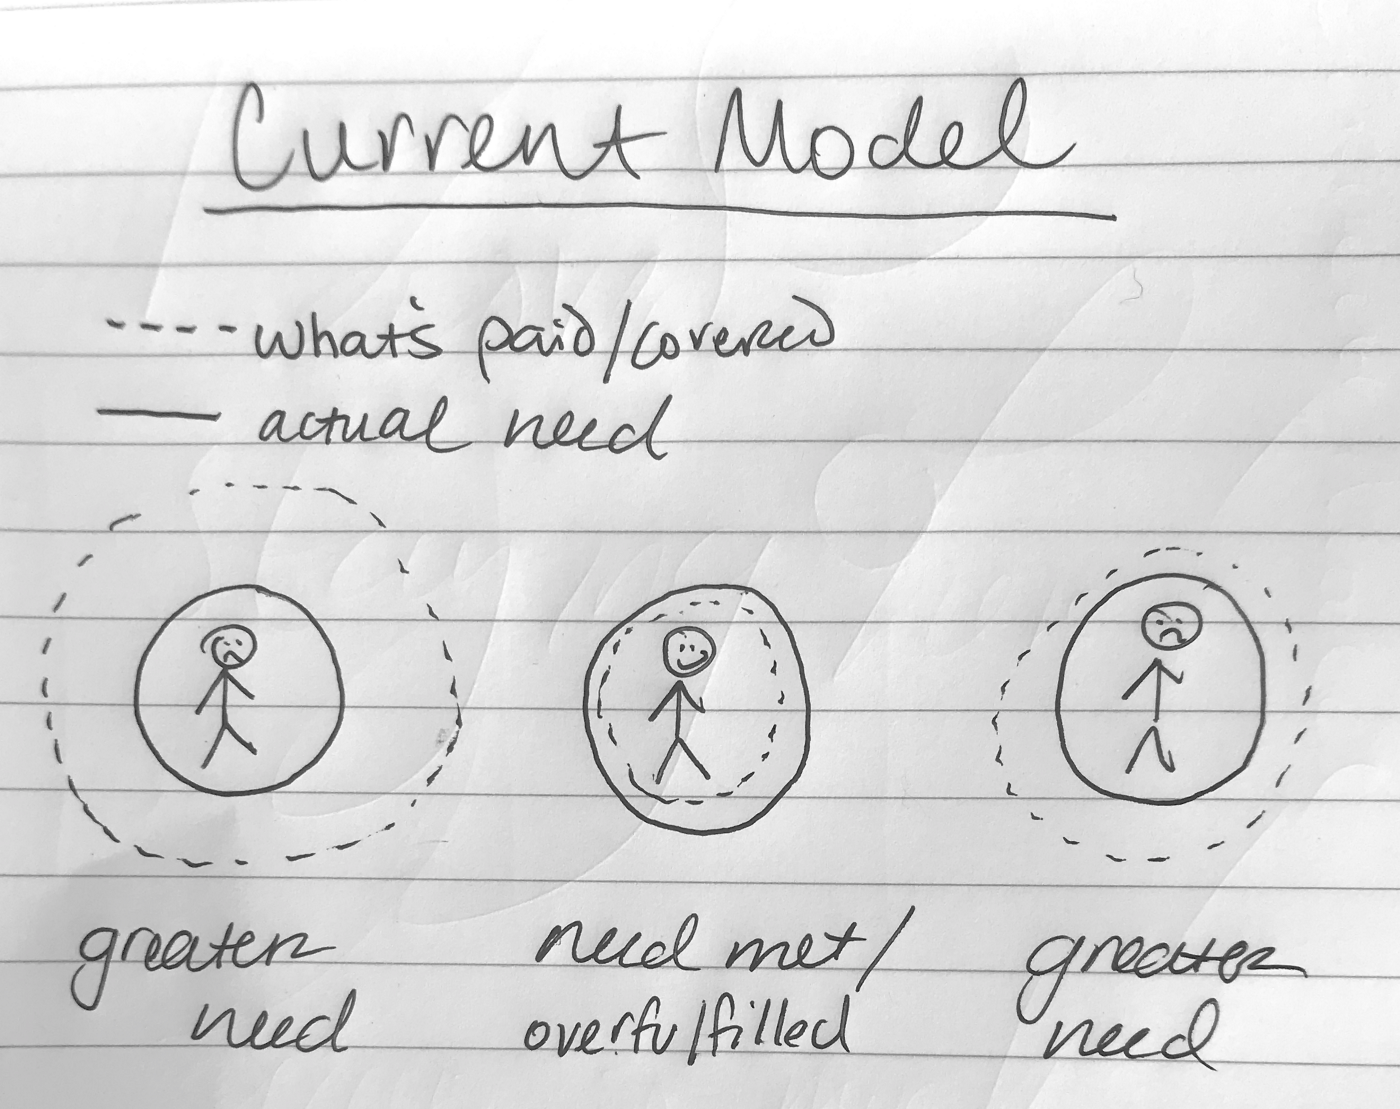 Current Model
what's paid/covered
actual need
greater need met/ greater
need overfulfilled need